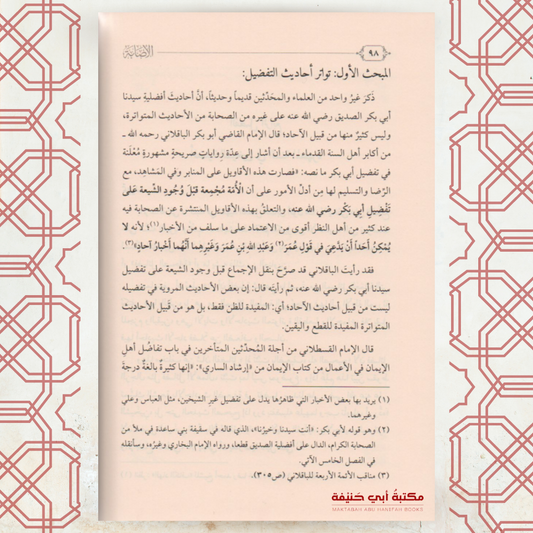 ٩٨
المبحث الأول: تواتر أحاديث التفضيل:
ذَكَرَ غيرُ واحد من العلماء والمحدّثين قديماً وحديثاً، أنَّ أحاديث أفضليةِ سيدنا
أبي بكر الصديق رضي الله عنه على غيره من الصحابة من الأحاديث المتواترة،
وليس كثيرٌ منها من قبيل الآحاد؛ قال الإمام القاضي أبو بكر الباقلاني رحمه الله ـ
من أكابر أهل السنة القدماء ـ بعد أن أشار إلى عِدّة رواياتٍ صريحةٍ مشهورةٍ مُعْلَنة
في تفضيل أبي بكر ما نصه: «فصارت هذه الأقاويل على المنابر وفي المَشاهد، مع
الرِّضا والتسليم لها مِن أدلِّ الأمور على أن الْأُمّة مُجْمِعة قبْلَ وُجُودِ الشّيعة عَلى
تَفْضِيلِ أبِي بَكْر رضي الله عنه، والتعلقُ بهذه الأقاويل المنتشرة عن الصحابة فيه
عند كثير من أهل النظر أقوى من الاعتماد على ما سلف من الأخبار(١)؛ لأنه لا
يُمْكِنُ أحَداً أَنْ يَدَّعِيَ في قَوْلِ عُمَرَ(٢) وَعَبْدِ اللهِ بْنِ عُمَرَ وَغَيْرِهِما أنَّهُما أَخْبَارُ آحادٍ»(٣).
فقد رأيتَ الباقلاني قد صرَّحَ بنقل الإجماع قبل وجود الشيعة على تفضيل
سيدنا أبي بكر رضي الله عنه، ثم رأيتَه قال: إن بعض الأحاديث المروية في تفضيله
ليست من قبيل أحاديث الآحاد؛ أي: المفيدة للظن فقط، بل هو من قَبيل الأحاديث
المتواترة المفيدة للقطع واليقين.
قال الإمام القسطلاني من أجلة المُحدِّثين المتأخرين في باب تفاضُل أهلِ
الإيمان في الأعمال من كتاب الإيمان من «إرشاد الساري»: «إنها كثيرةٌ بالغةٌ درجةَ
(١) يريد بها بعض الأخبار التي ظاهرُها يدل على تفضيل غير الشيخين، مثل العباس وعلي
وغيرهما.
(٢) وهو قوله لأبي بكر: «أنت سيدنا وخيرُنا»، الذي قاله في سقيفة بني ساعدة في ملأ من
الصحابة الكرام، الدال على أفضلية الصديق قطعا، ورواه الإمام البخاري وغيرُه، وسأنقله
في الفصل الخامس الآتي.
(٣) مناقب الأئمة الأربعة للباقلاني (ص٣٠٥).
مكتبة أبي حنيفة
MAKTABAH ABU HANEFAH BOOKS